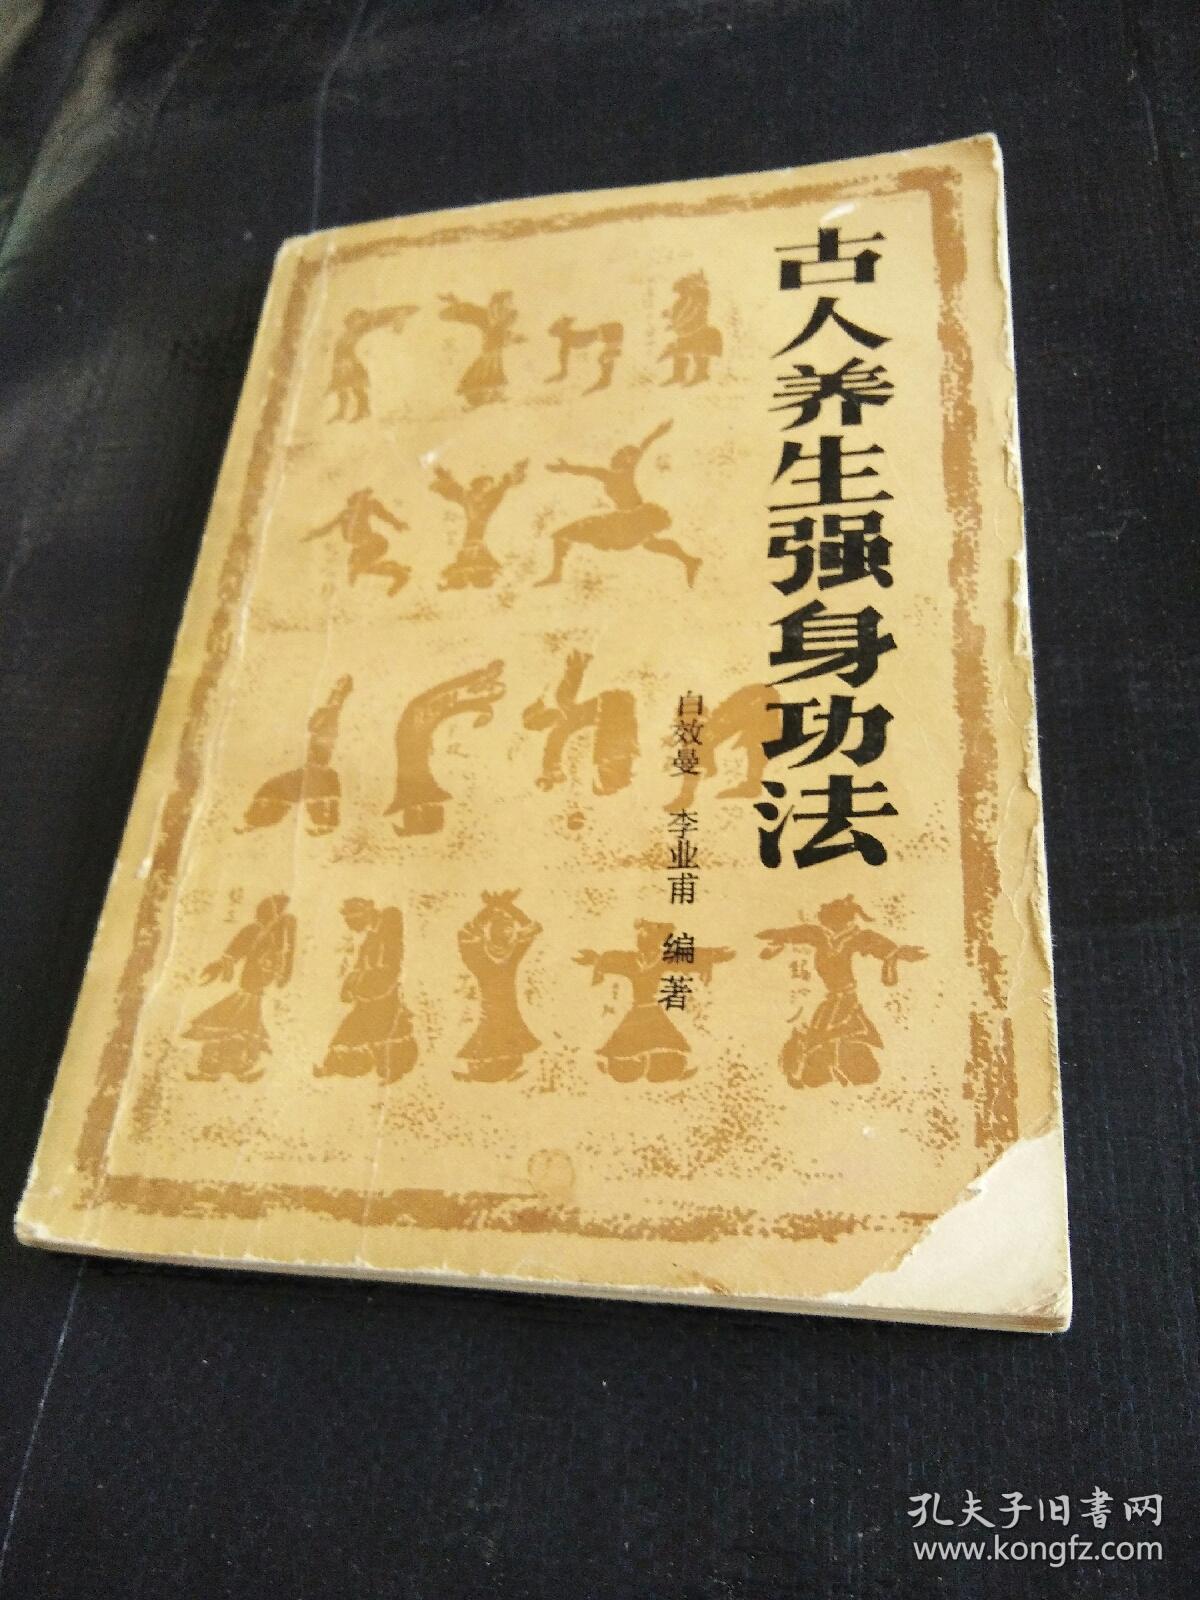 古人养生强身功法
白效曼 李业甫 编著
孔夫子旧書网
www.kongfz.com